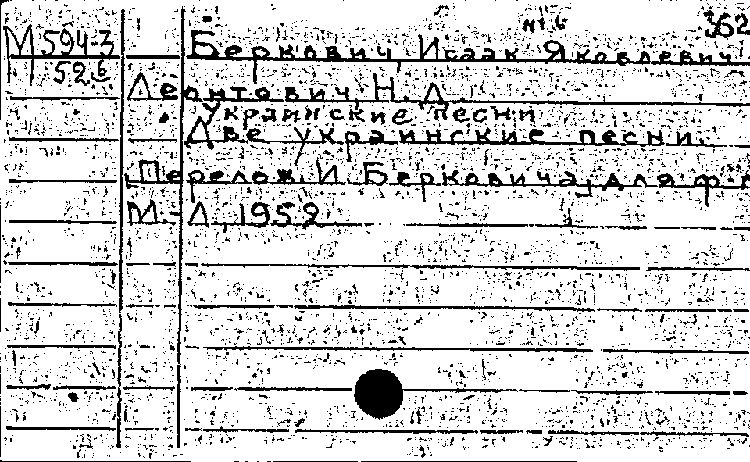 М 594-3
526
Беркович, Исаак Яковлевич
Леонтович, Н. Д.
Украинские песни
Две украинские песни.
Перелож. И. Берковича для ф-п
М.-Л., 1952